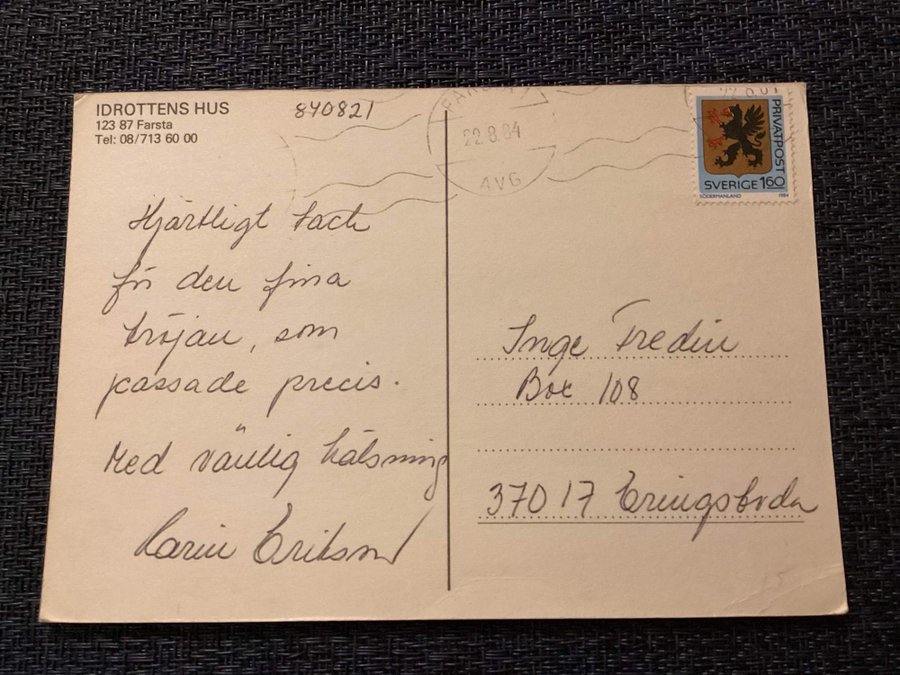 IDROTTENS HUS
123 87 Farsta
Tel: 08/713 60 00
840821
22.8.84
AVG
PRIVATPOST
SVERIGE 160
SÖDERMANLAND 1984
Hjärtligt tack
för den fina
tröjan, som
passade precis.
Med vänlig hälsning
Karin Eriksson
Inge Fredin
Box 108
370 17 Eringsboda